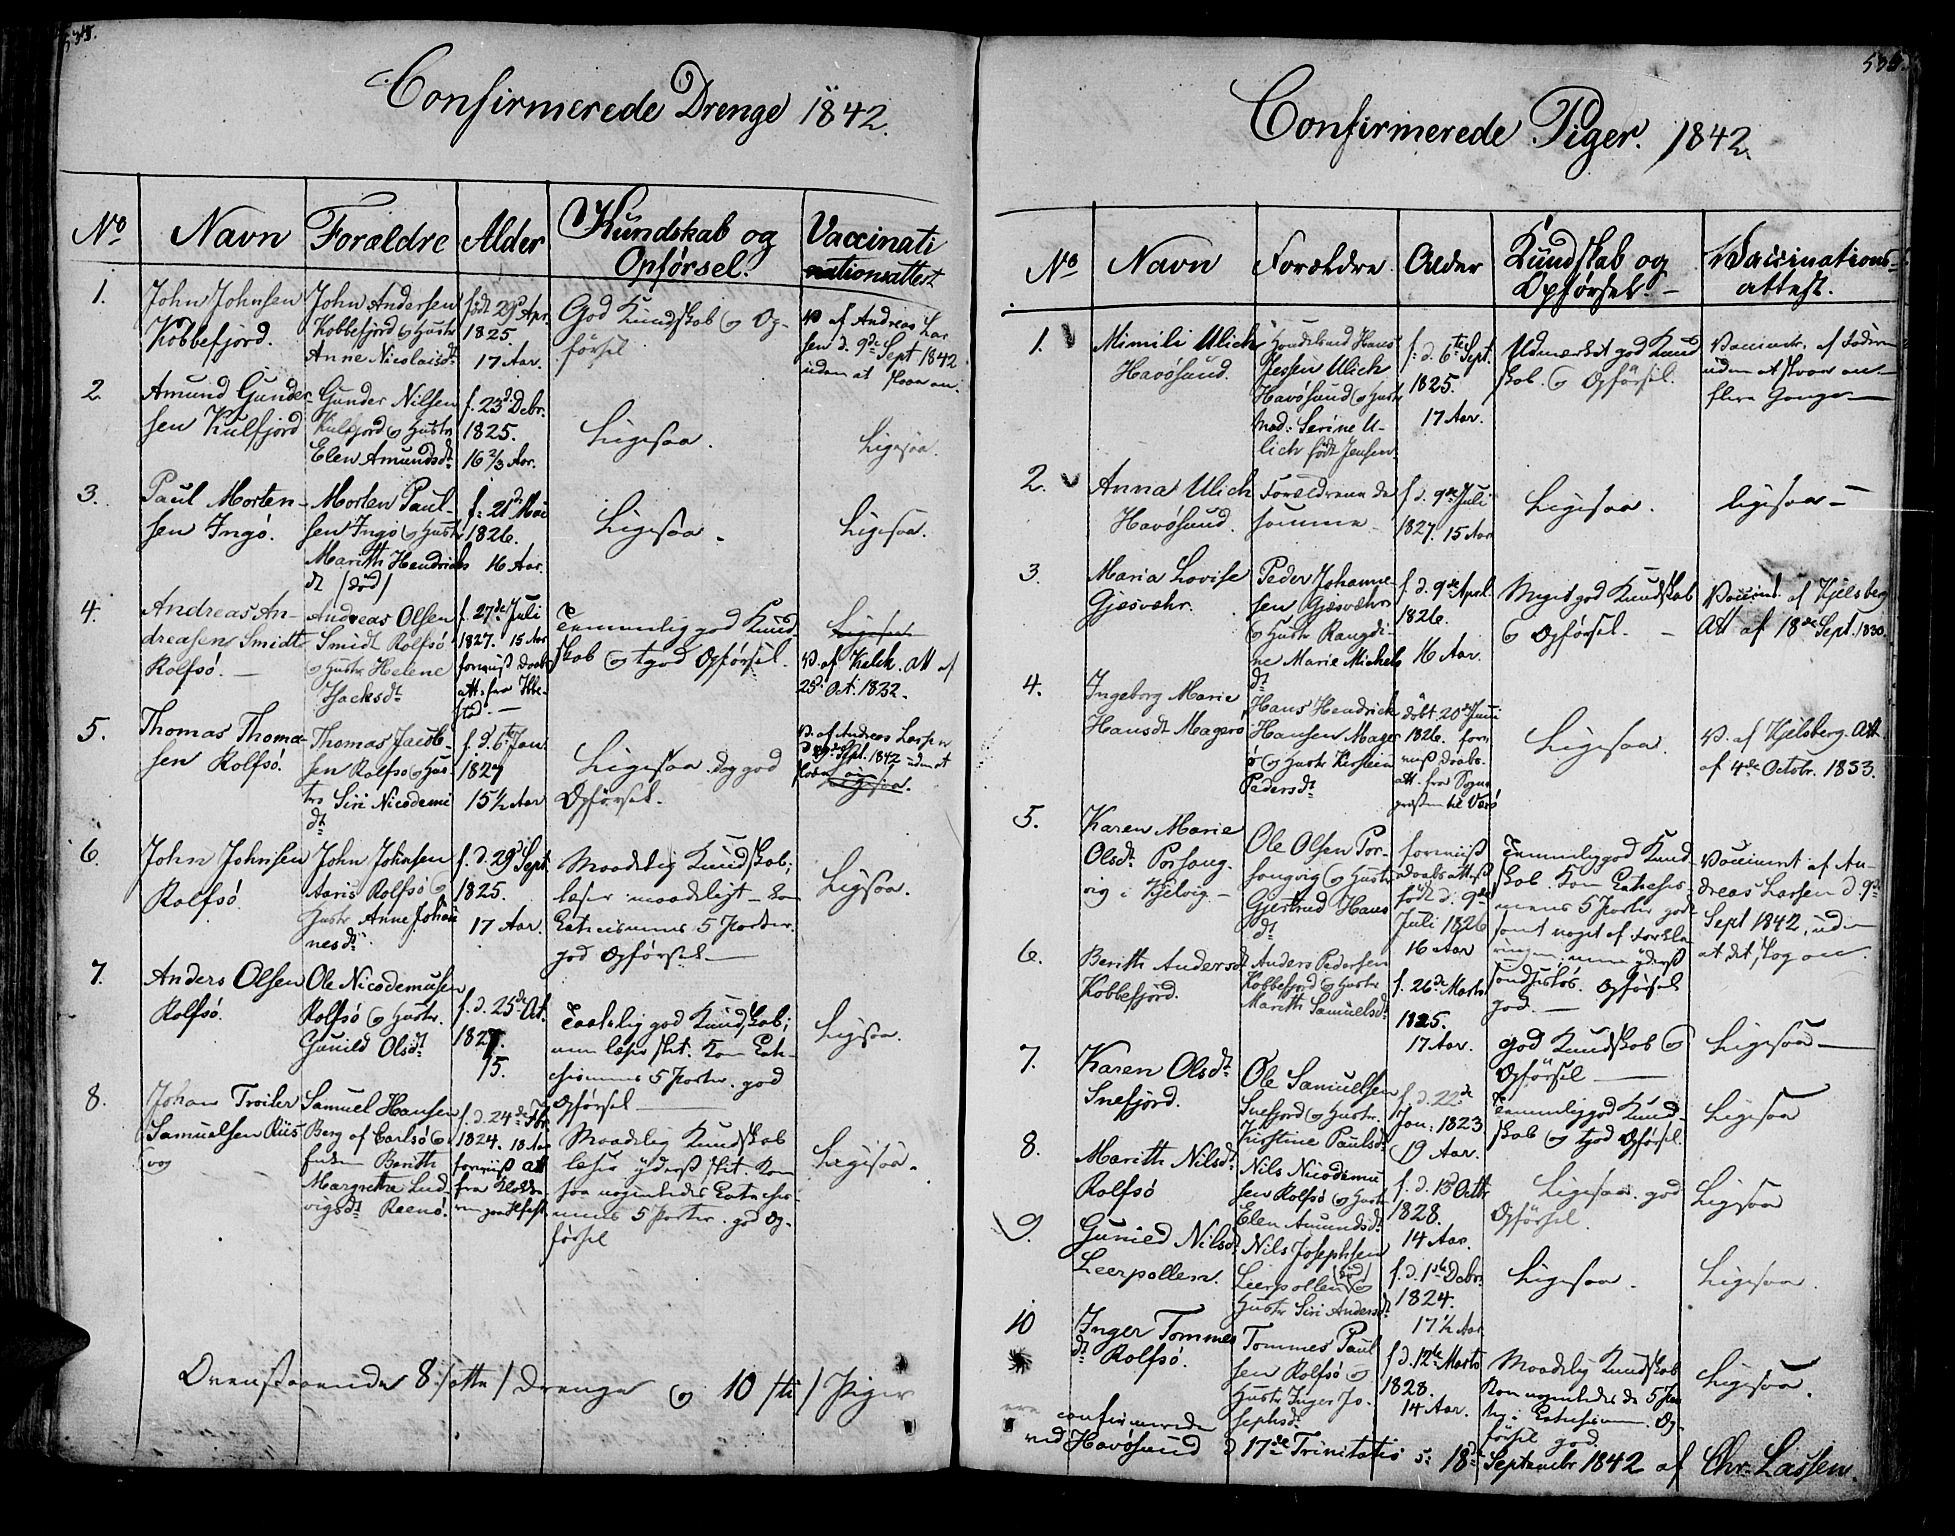 Confirmerede Drenge 1842.
No Navn Forældre Alder Kundskab og Opførsel. Vaccinati nationsattest
1. John Johnsen Kobbefjord.
John Andersen Kobbefjord og Hustr Anne Nicolaisdt
født 29d Apr. 1825. 17 Aar.
God Kundskab og Opførsel
V. af Andreas Larsen d. 9de Sept 1842 uden at slaae an.
2. Amund Gundersen Kulfjord
Gunder Nilsen Kulfjord og Hustr Elen Amundsdt
f. 23d Debr. 1825. 16 2/3 Aar.
Ligesaa.
Ligesaa.
3. Paul Mortensen Ingø.
Morten Paulsen Ingø og Hustr Marith Hendriksdt /død/
f. 21d Mai 1826. 16 Aar.
Ligesaa.
Ligesaa.
4. Andreas Andreasen Smidt Rolfsø.
Andreas Olsen Smidt Rolfsø og Hustr Helene Isacksdt
f. 27de Juli 1827. 15 Aar forevist Daabsatt. fra Ibbestad.
Temmelig god Kundskab og god Opførsel.
Ligesaa
V. af Kelch. Att af 25d Oct. 1832.
5. Thomas Thomasen Rolfsø.
Thomas Jacobsen Rolfsø og Hustro Siri Nicodemidt
f. d. 6te Jan. 1827 15½ Aar
Ligesaa. dog god Opførsel.
V. af Andreas Larsen d. 9de Sept. 1842 uden at slaae an
Ligesaa.
6. John Johnsen Rolfsø.
John Johnsen Aaris Rolfsø og Hustr Anne Johannesdt
f. d. 29d Sept 1825. 17 Aar.
Maadelig Kundskab; læser maadeligt - kan Catecismens 5 Parter. god Opførsel
Ligesaa.
7. Anders Olsen Rolfsø.
Ole Nicodemusen Rolfsø og Hustr. Gunild Olsdt
f. d. 25de Oct. 1827. 15.
Taalelig god Kundskab; men læser slet. Kan Catechismens 5 Parter. god Opførsel
Ligesaa.
8. Johan Troiler Samuelsen Riisvog
Samuel Hansen Berg af Carlsø og Enken Berith Margrethe Ludvigsdt Reenø.
f. d. 24de Fbr. 1824. 18 Aar forevist att fra Klokkeren paa Helgø
Maadelig Kundskab læser yderst slet. Kan saa nogenledes Catechismens 5 Parter. god Opførsel
Ligesaa.
Ovenstaaende 8 /otte/ Drenge og 10 /ti/ Piger
539.
Confirmerede Piger. 1842.
No Navn Forældre. Alder Kundskab og Opførsel. Vaccinations-attest.
1. Mimili Ulich Havøsund.
Handelsmd Hans Jessen Ulich Havøsund og Hustr Mad: Serine Ulich født Jensen
f. d. 6te Sept. 1825. 17 Aar.
Udmærket god Kundskab og Opførsel.
Vaccinr. af Faderen uden at slaae an flere Gange
2. Anna Ulich Havøsund.
Forældrene de samme
f. d. 9de Juli 1827. 15 Aar
Ligesaa.
ligesaa
3. Maria Lovise Gjesvæhr.
Peder Johannesen Gjesvæhr og Hustr Rangdine Marie Michelsdt
f. d. 9de Aprl 1826. 16 Aar.
Meget god Kundskab og Opførsel.
Vaccint. af Kjelsberg Att af 18de Sept. 1830.
4. Ingeborg Marie Hansdt Magerø
Hans Hendrick Hansen Magerø og Hustr Kirsteen Pedersdt
døbt 20de Juni 1826. forevist Daabsatt. fra Sognepræsten til Varø
Ligesaa.
V. af Kjelsberg. Att af 4de Octobr. 1833.
5. Karen Marie Olsdt Porsangvig i Kjelvig.
Ole Olsen Porsangvig og Hustr Gjertrud Hansdt
forevist Daabsattest født d. 9de Juli 1826 16 Aar
Temmelig god Kundskab. Kan Catechismens 5 Parter godt samt noget af Forklaringen men yderst Opførsel god.
Vaccinert af Andreas Larsen d. 9de Sept 1842, uden at det slog an.
6. Berith Andersdt Kobbefjord.
Anders Pedersen Kobbefjord og Hustr Marith Samuelsdt
f. 26de Marts 1825. 17 Aar.
god Kundskab og Opførsel
Ligesaa
7. Karen Olsdt. Snefjord.
Ole Samuelsen Snefjord og Hustr. Kirstine Paulsdt
f. d. 22de Jan: 1823 19 Aar.
Temmelig god Kundskab og god Opførsel
Ligesaa
8. Marith Nilsdt Rolfsø
Nils Nicodemusen Rolfsø og Hustr Elen Amundsdt
f. d. 13d Octbr 1828. 14 Aar.
Ligesaa. god Opførsel.
Ligesaa
9. Gunied Nilsdt Leerpollen.
Nils Josephsen Leerpollen (død) og Hustr Siri Andersdt
f. d. 1ste Debr. 1824. 17½ Aar
Ligesaa.
Ligesaa.
10 Inger Tommesdt Rolfsø.
Tommes Paulsen Rolfsø og Hustr Inger Josephsdt
f. d. 12te Marts 1828. 14 Aar.
Maadelig Kundskab Kan nogenledes de 5 Parter i Catechismen. Opførsel god.
Ligesaa.
ere confirmerede
ved Havøsund d 17de Trinitatis 5: 18d Septembr 1842 af Chr. Lassen.